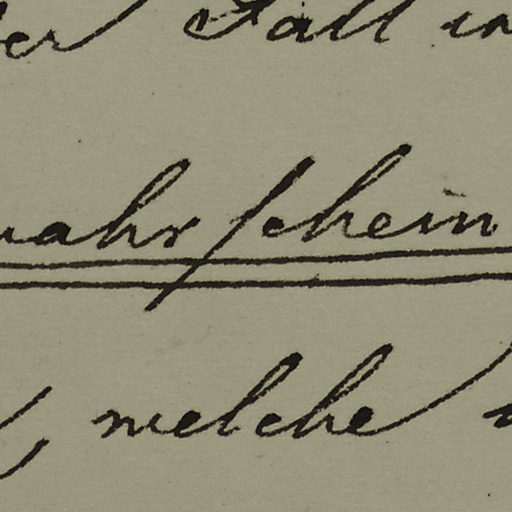 er Fall in
wahrſchein
, welche